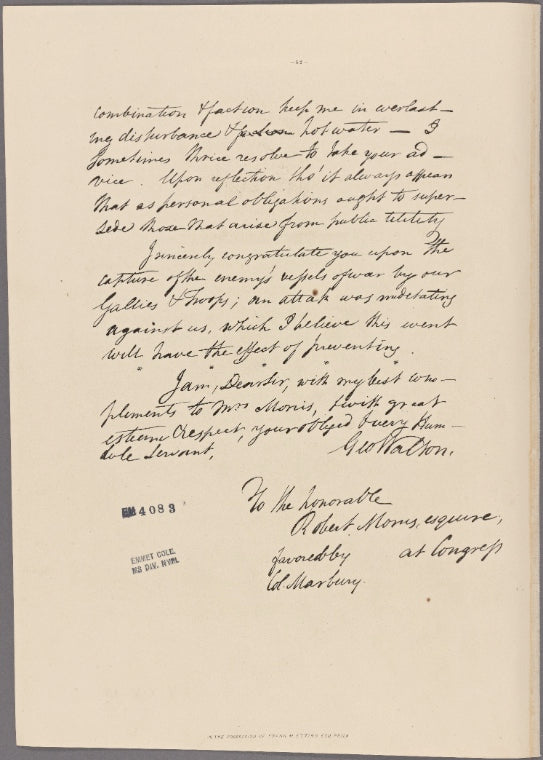 combination & faction keep me in everlast-
ing disturbance & faction hot water — I
Sometimes thrice resolve to take your ad-
vice. Upon reflection tho' it always appears
that as personal obligations ought to super-
sede those that arise from public utility
I sincerely congratulate you upon the
capture of the enemy's vessels of war by our
Gallies & troops; an attak was meditating
against us, which I believe this event
will have the effect of preventing.
I am, Dear Sir, with my best com-
pliments to Mrs Morris, & with great
esteem & respect, your obliged & very Hum-
ble Servant,
Geo Walton.
To the honorable
Robert Morris, esquire,
favored by at Congress
Col. Marbury.
EM 4083
EMMET COLL.
MS DIV. NYPL
IN THE POSSESSION OF FRANK M ETTING ESQ PHILA